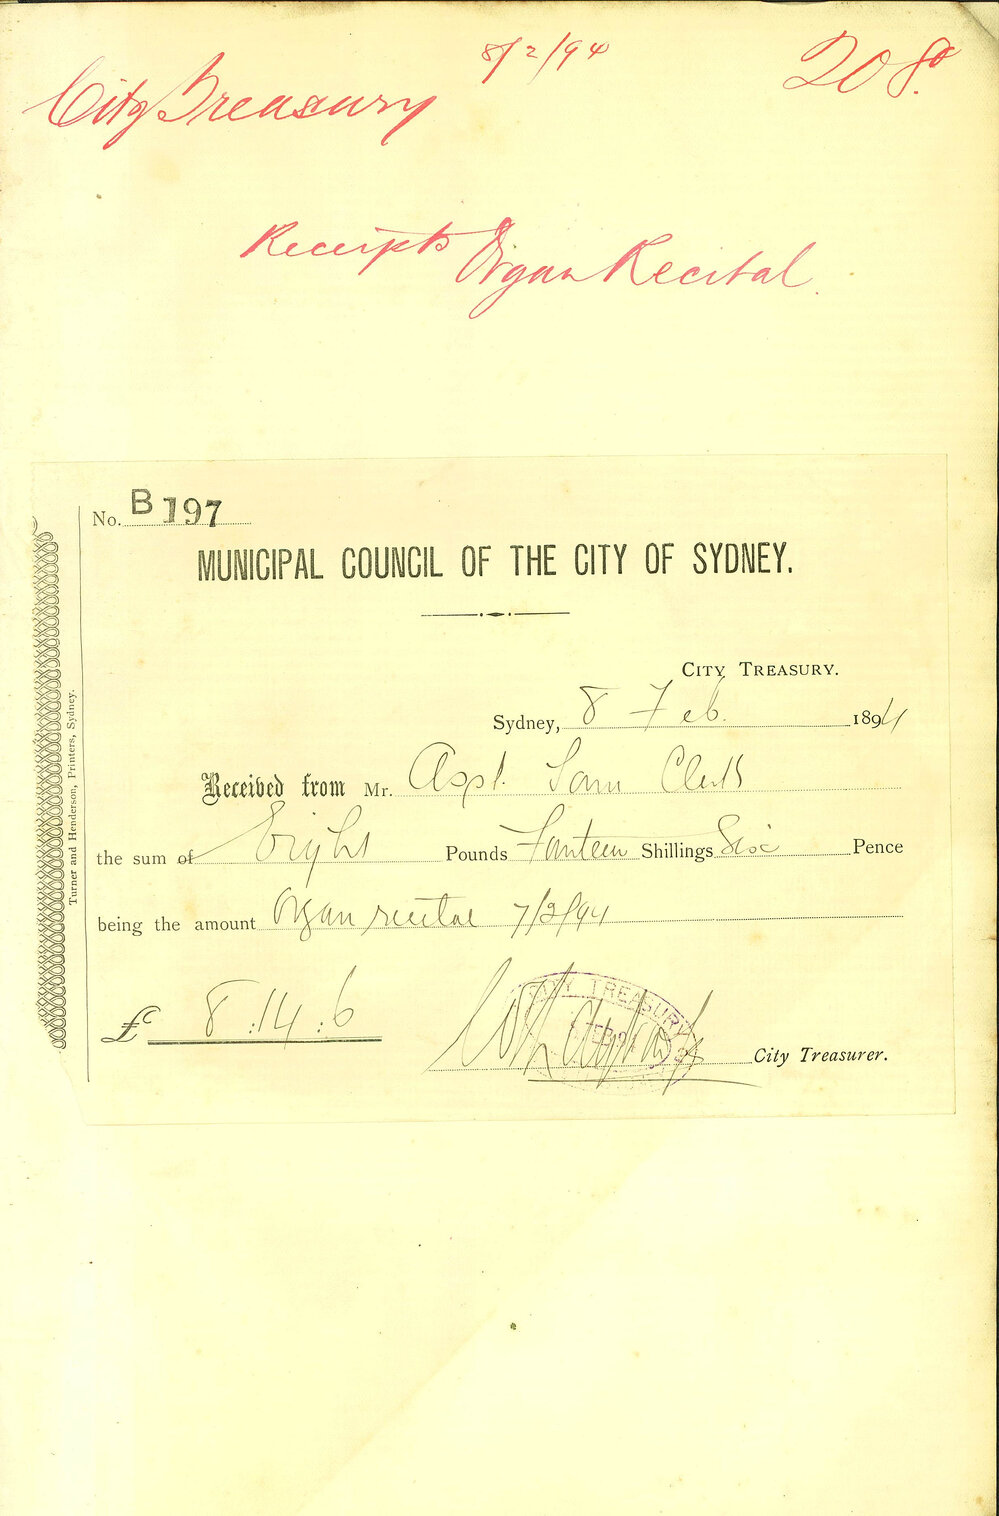 8/2/94
208
City Treasury
Receipts Organ Recital
No. B 197
MUNICIPAL COUNCIL OF THE CITY OF SYDNEY.
CITY TREASURY.
Sydney, 8 Feb. 1894
Received from Mr. Town Clerk
the sum of Eight Pounds Fourteen Shillings Six Pence
being the amount Organ recital 7/2/94
£ 8:14:6
City Treasurer.
CITY TREASURY
Turner and Henderson, Printers, Sydney.